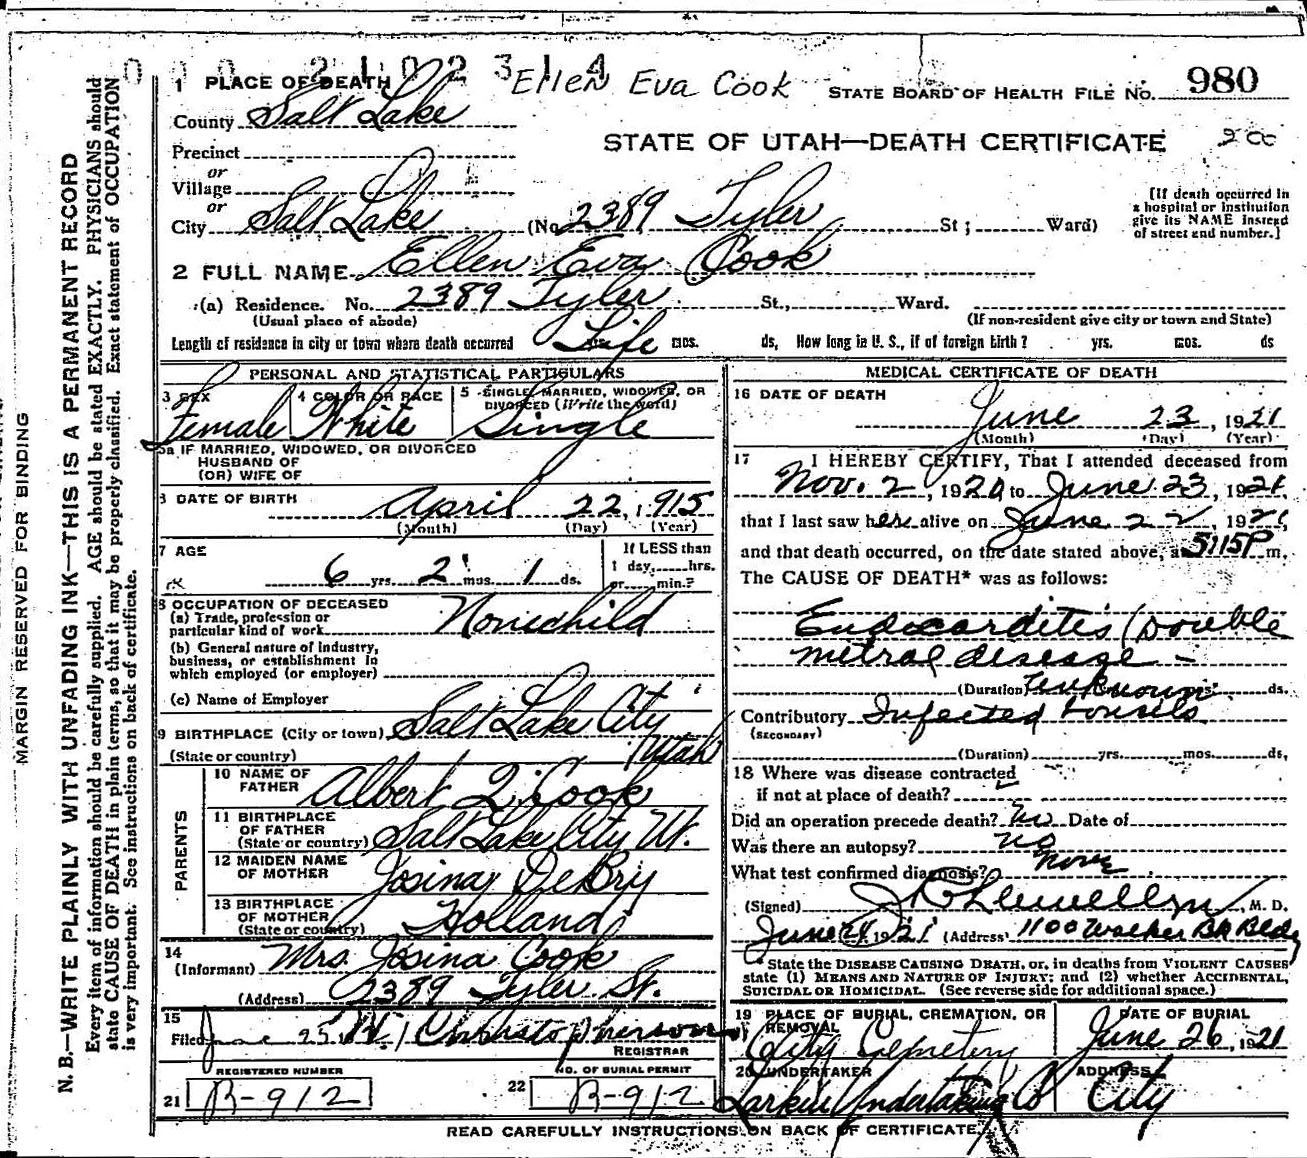 0002102314
1 PLACE OF DEATH Ellen Eva Cook STATE BOARD OF HEALTH FILE NO. 980
County Salt Lake
STATE OF UTAH—DEATH CERTIFICATE
Precinct
or
Village
or
City Salt Lake (No 2389 Tyler St; Ward)
[If death occurred in
a hospital or institution
give its NAME instead
of street and number.]
2 FULL NAME Ellen Eva Cook
(a) Residence. No. 2389 Tyler St., Ward.
(Usual place of abode) (If non-resident give city or town and State)
Length of residence in city or town where death occurred Life mos. ds, How long in U. S., if of foreign birth? yrs. mos. ds
PERSONAL AND STATISTICAL PARTICULARS
3 SEX 4 COLOR OR RACE 5 SINGLE, MARRIED, WIDOWED, OR
DIVORCED (Write the word)
Female White Single
5a IF MARRIED, WIDOWED, OR DIVORCED
HUSBAND OF
(OR) WIFE OF
6 DATE OF BIRTH April 22, 1915
(Month) (Day) (Year)
7 AGE
6 yrs. 2 mos. 1 ds.
If LESS than
1 day, hrs.
or min.?
8 OCCUPATION OF DECEASED
(a) Trade, profession or
particular kind of work None child
(b) General nature of industry,
business, or establishment in
which employed (or employer)
(c) Name of Employer
9 BIRTHPLACE (City or town) Salt Lake City
(State or country) Utah
PARENTS
10 NAME OF
FATHER Albert Q. Cook
11 BIRTHPLACE
OF FATHER
(State or country) Salt Lake City Ut.
12 MAIDEN NAME
OF MOTHER Josina DeBry
13 BIRTHPLACE
OF MOTHER
(State or country) Holland
14
(Informant) Mrs. Josina Cook
(Address) 2389 Tyler St.
15
Filed June 25 Christopherson
REGISTRAR
REGISTERED NUMBER NO. OF BURIAL PERMIT
21 B-912 22 B-912
MEDICAL CERTIFICATE OF DEATH
16 DATE OF DEATH
June 23, 1921
(Month) (Day) (Year)
17 I HEREBY CERTIFY, That I attended deceased from
Nov. 2, 1920 to June 23, 1921
that I last saw her alive on June 22, 1921
and that death occurred, on the date stated above, at 5:15P m.
The CAUSE OF DEATH* was as follows:
Endocarditis (Double
mitral disease —
(Duration) unknown ds.
Contributory Infected tonsils
(SECONDARY)
(Duration) yrs. mos. ds,
18 Where was disease contracted
if not at place of death?
Did an operation precede death? no Date of
Was there an autopsy? no
What test confirmed diagnosis? None
(Signed) Llewellyn, M. D.
June 24 1921 (Address) 1100 Walker Bk Bldg
*State the DISEASE CAUSING DEATH, or, in deaths from VIOLENT CAUSES
state (1) MEANS AND NATURE OF INJURY; and (2) whether ACCIDENTAL,
SUICIDAL OR HOMICIDAL. (See reverse side for additional space.)
19 PLACE OF BURIAL, CREMATION, OR
REMOVAL
City Cemetery
DATE OF BURIAL
June 26, 1921
20 UNDERTAKER
Larkin Undertaking Co
ADDRESS
City
READ CAREFULLY INSTRUCTIONS ON BACK OF CERTIFICATE.
MARGIN RESERVED FOR BINDING
N. B.—WRITE PLAINLY WITH UNFADING INK—THIS IS A PERMANENT RECORD
Every item of information should be carefully supplied. AGE should be stated EXACTLY. PHYSICIANS should
state CAUSE OF DEATH in plain terms, so that it may be properly classified. Exact statement of OCCUPATION
is very important. See instructions on back of certificate.